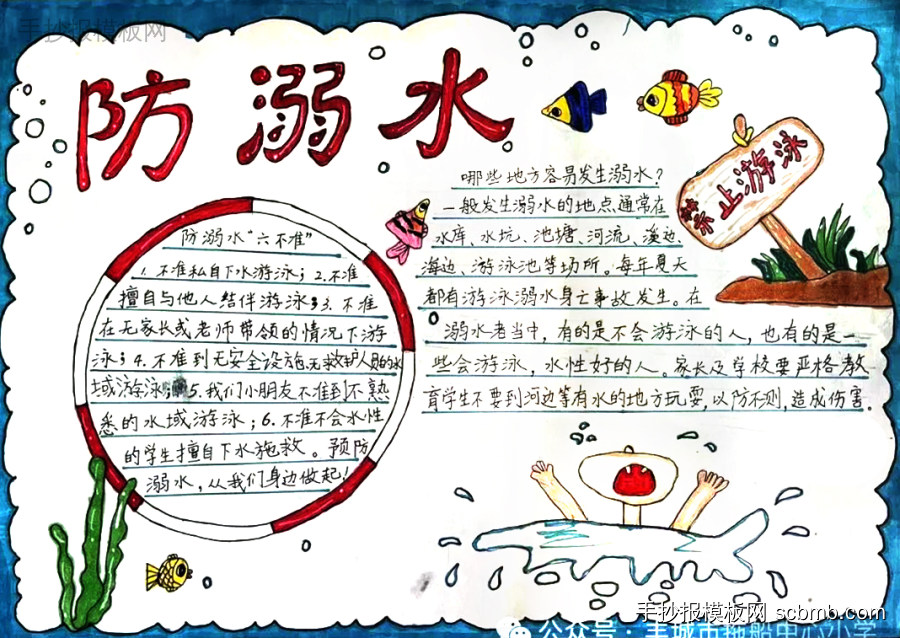 手抄报模板网
防溺水
防溺水“六不准”
1. 不准私自下水游泳；2. 不准
擅自与他人结伴游泳；3. 不准
在无家长或老师带领的情况下游
泳；4. 不准到无安全设施、无救护人员的水
域游泳；5. 我们小朋友不准到不熟
悉的水域游泳；6. 不准不会水性
的学生擅自下水施救。预防
溺水，从我们身边做起！
哪些地方容易发生溺水？
一般发生溺水的地点通常在
水库、水坑、池塘、河流、溪边
海边、游泳池等场所。每年夏天
都有游泳溺水身亡事故发生。在
溺水者当中，有的是不会游泳的人，也有的是一
些会游泳，水性好的人。家长及学校要严格教
育学生不要到河边等有水的地方玩耍，以防不测，造成伤害.
禁止游泳
手抄报模板网 scbmb.com
公众号：丰城市拖船中心小学